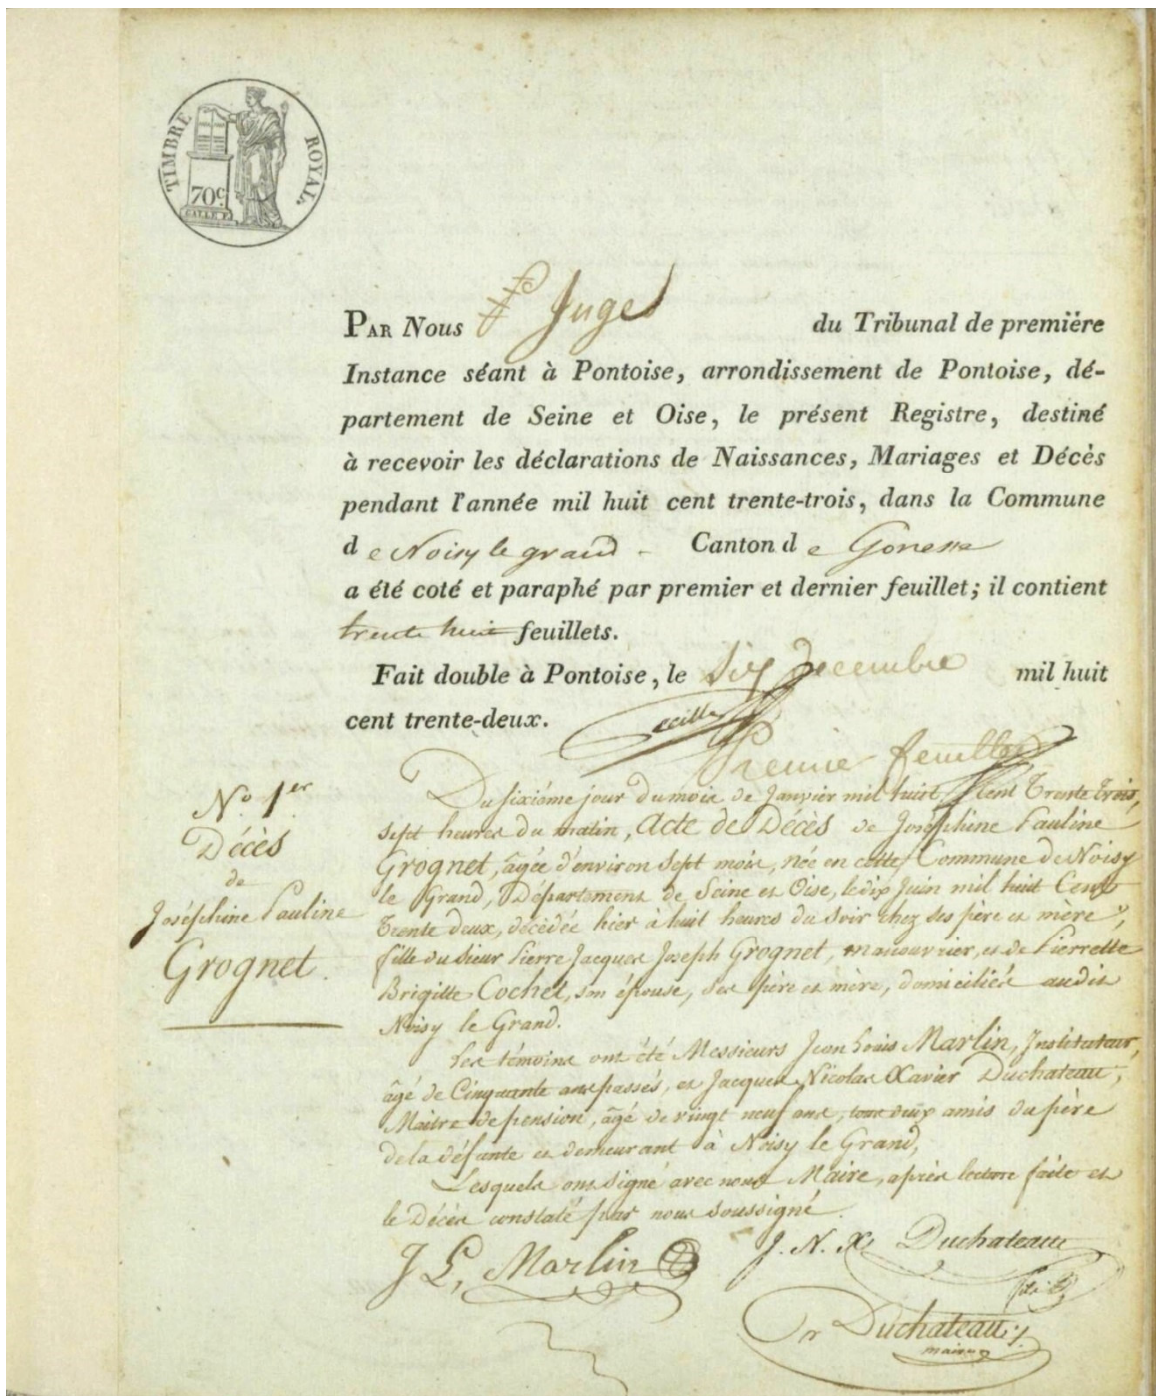 TIMBRE ROYAL.
70c.
PAR Nous Juge du Tribunal de première
Instance séant à Pontoise, arrondissement de Pontoise, dé-
partement de Seine et Oise, le présent Registre, destiné
à recevoir les déclarations de Naissances, Mariages et Décès
pendant l'année mil huit cent trente-trois, dans la Commune
de Noisy le grand - Canton de Gonesse
a été coté et paraphé par premier et dernier feuillet; il contient
trente huit feuillets.
Fait double à Pontoise, le Dix Decembre mil huit
cent trente-deux.
Premier feuillet
N.o 1.er
Décès
de
Joséphine Pauline
Grognet.
Du sixième jour du mois de Janvier mil huit Cent Trente trois,
sept heures du matin, Acte de Décès de Joséphine Pauline
Grognet, âgée d'environ sept mois, née en cette Commune de Noisy
le Grand, Département de Seine et Oise, le dix Juin mil huit Cent
Trente deux, décédée hier à huit heures du soir chez ses père et mère,
fille du Sieur Pierre Jacques Joseph Grognet, manouvrier, et de Pierrette
Brigitte Cochet, son épouse, ses père et mère, domiciliés audit
Noisy le Grand.
Les témoins ont été Messieurs Jean Louis Marlin, Instituteur,
âgé de Cinquante ans passés, et Jacques Nicolas Xavier Duchateau,
Maitre de pension, âgé de vingt neuf ans, tous deux amis du père
de la défunte et demeurant à Noisy le Grand,
Lesquels ont signé avec nous Maire, après lecture faite et
le Décès constaté par nous soussigné.
J. L. Marlin J. N. X. Duchateau
Duchateau
maire